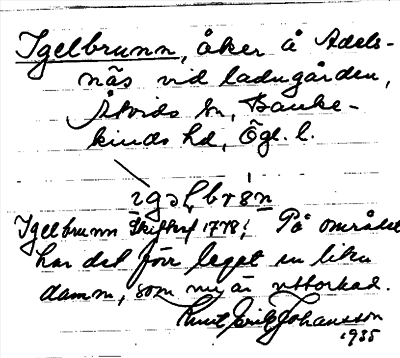 Igelbrunn, åker å Adels-
näs vid ladugården,
Åtvids sn, Banke-
kinds hd, Ögl. l.
Igelbrunn Skifteskt 1778! På området
har det förr legat en liten
damm, som nu är uttorkad.
Knut Eric Johansson
1935